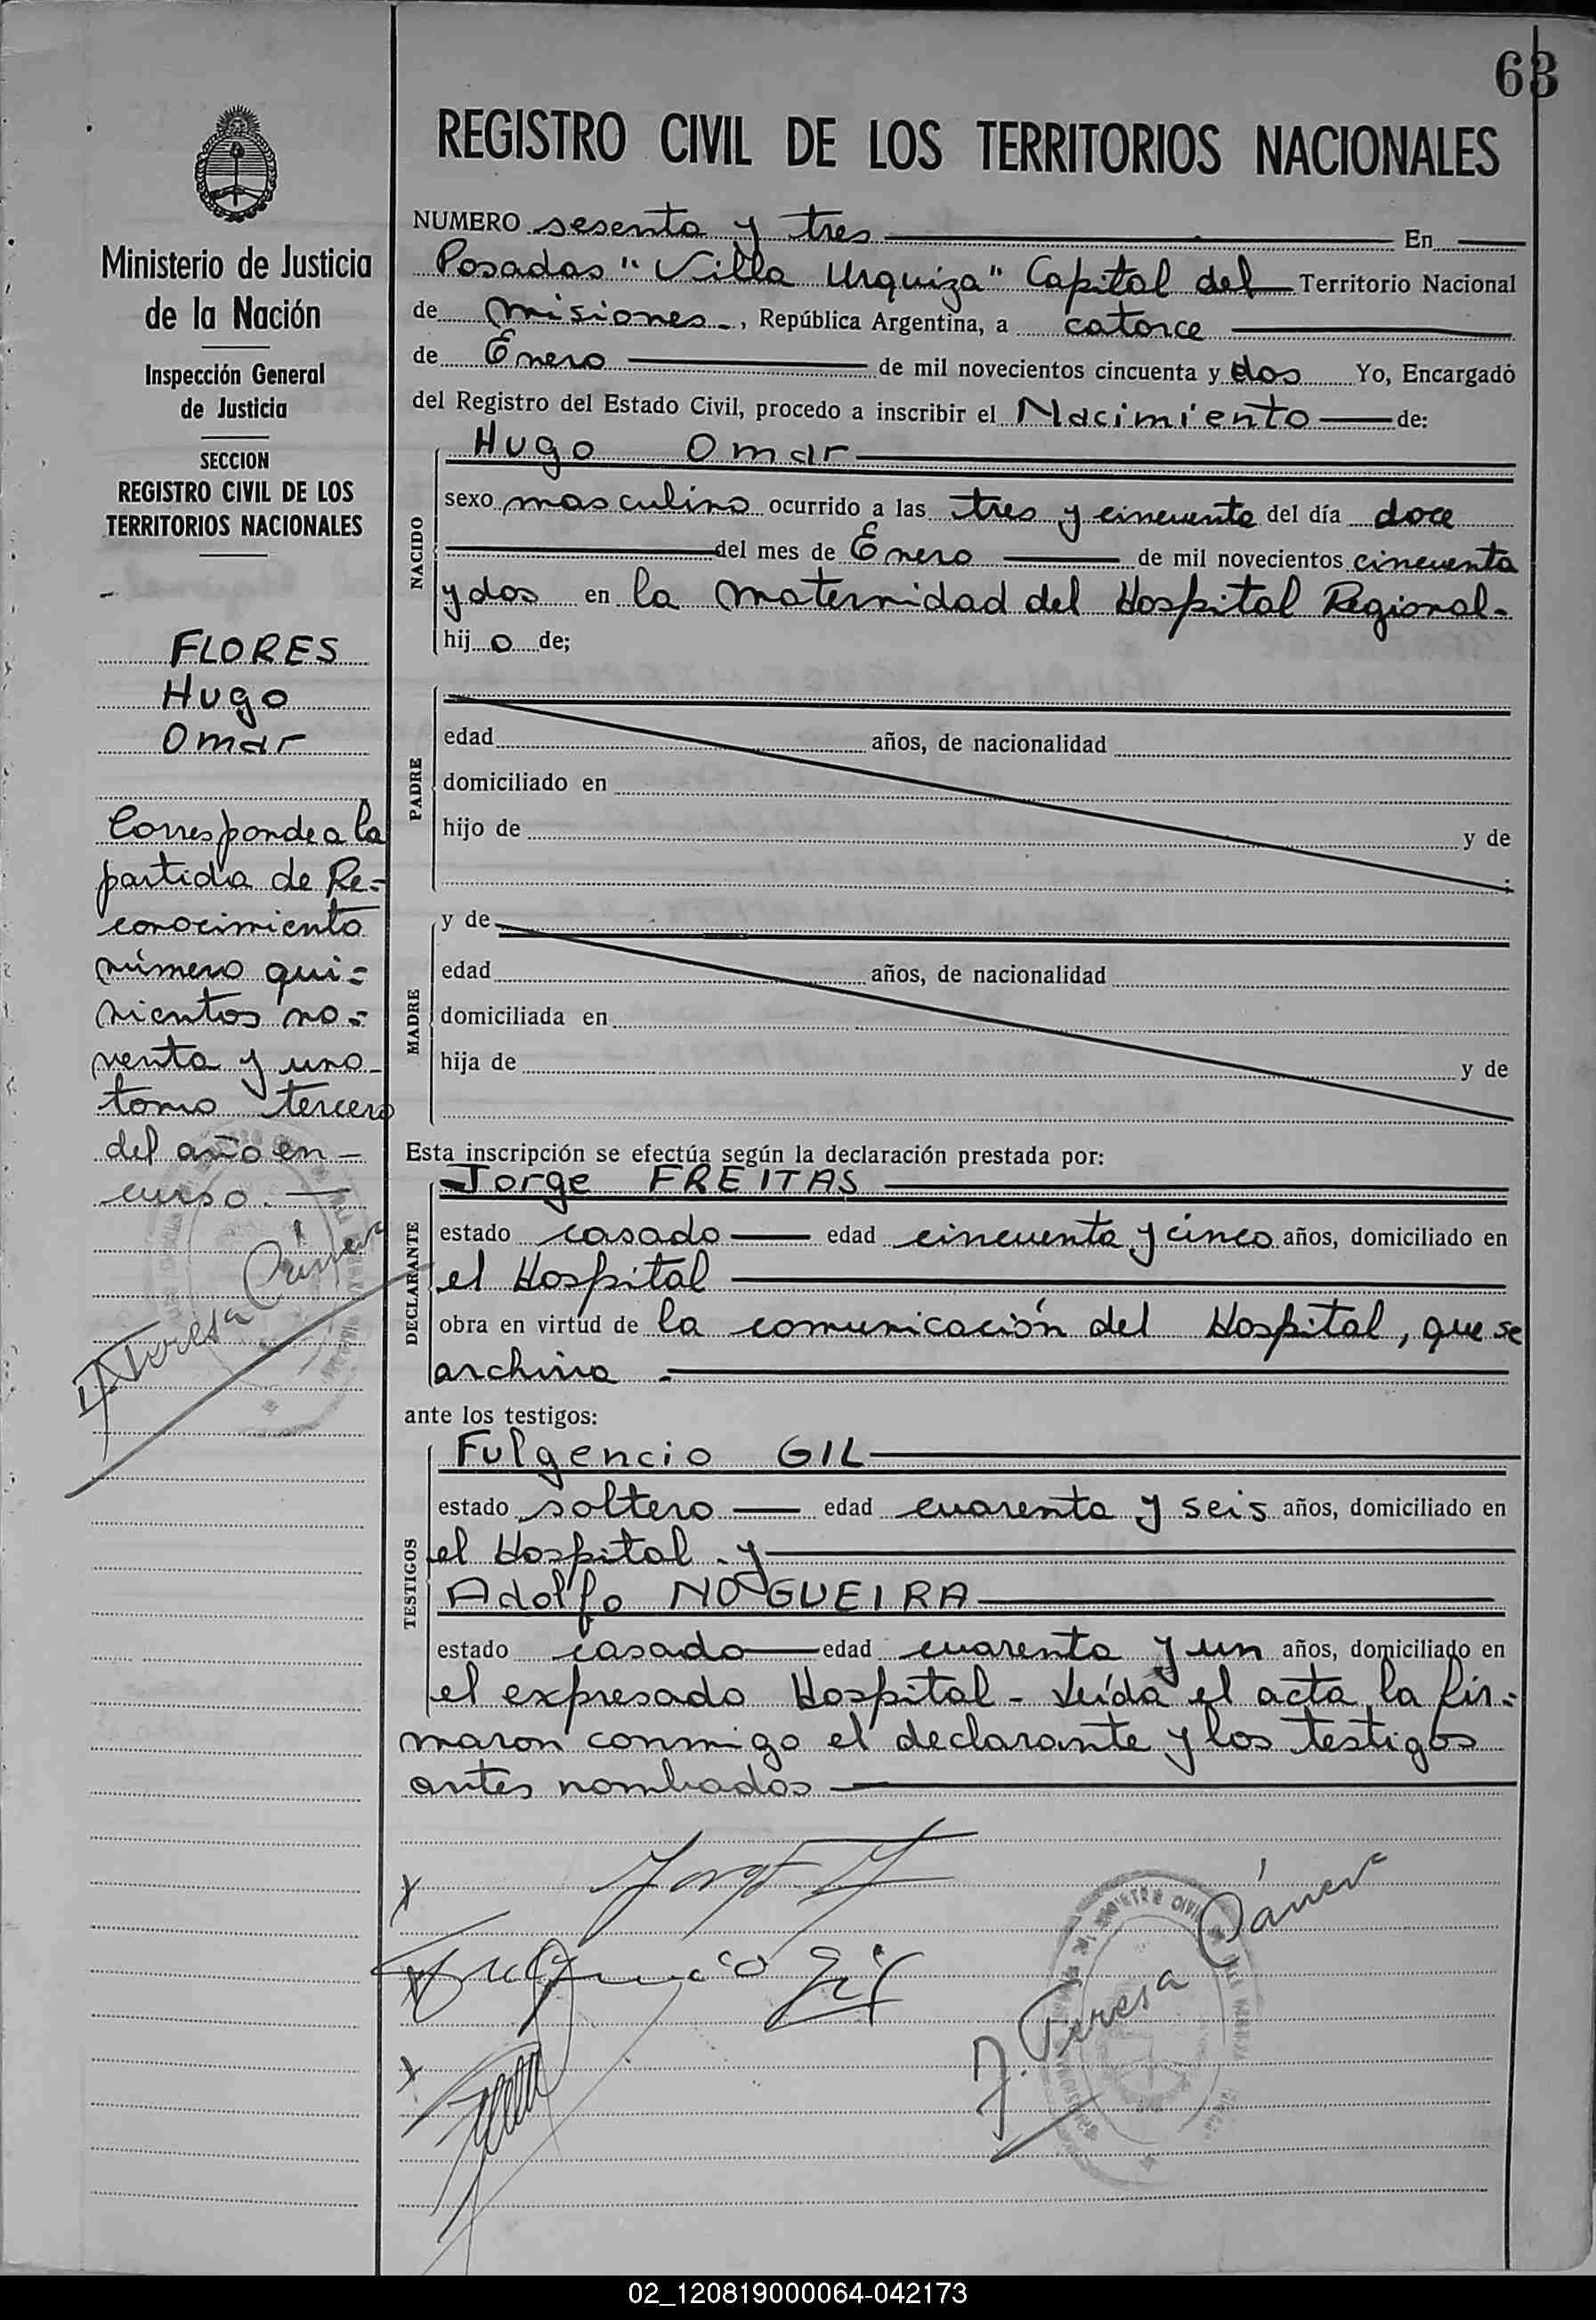 63
REGISTRO CIVIL DE LOS TERRITORIOS NACIONALES
Ministerio de Justicia
de la Nación
Inspección General
de Justicia
SECCION
REGISTRO CIVIL DE LOS
TERRITORIOS NACIONALES
FLORES
Hugo
Omar
Corresponde a la
partida de Re-
conocimiento
número qui-
nientos no-
venta y uno
tomo tercero
del año en
curso.
NUMERO sesenta y tres En
Posadas "Villa Urquiza" Capital del Territorio Nacional
de Misiones, República Argentina, a catorce
de Enero de mil novecientos cincuenta y dos Yo, Encargado
del Registro del Estado Civil, procedo a inscribir el Nacimiento de:
Hugo Omar
NACIDO
sexo masculino ocurrido a las tres y cincuenta del día doce
del mes de Enero de mil novecientos cincuenta
y dos en la maternidad del Hospital Regional-
hijo de;
PADRE
edad años, de nacionalidad
domiciliado en
hijo de y de
MADRE
y de
edad años, de nacionalidad
domiciliada en
hija de y de
Esta inscripción se efectúa según la declaración prestada por:
Jorge FREITAS
DECLARANTE
estado casado edad cincuenta y cinco años, domiciliado en
el Hospital
obra en virtud de la comunicación del Hospital, que se
archiva.
ante los testigos:
Fulgencio GIL
TESTIGOS
estado soltero edad cuarenta y seis años, domiciliado en
el Hospital y
Adolfo NOGUEIRA
estado casado edad cuarenta y un años, domiciliado en
el expresado Hospital - Leída el acta, la fir-
maron conmigo el declarante y los testigos
antes nombrados
Fulgencio Gil
J. Teresa
02_120819000064-042173